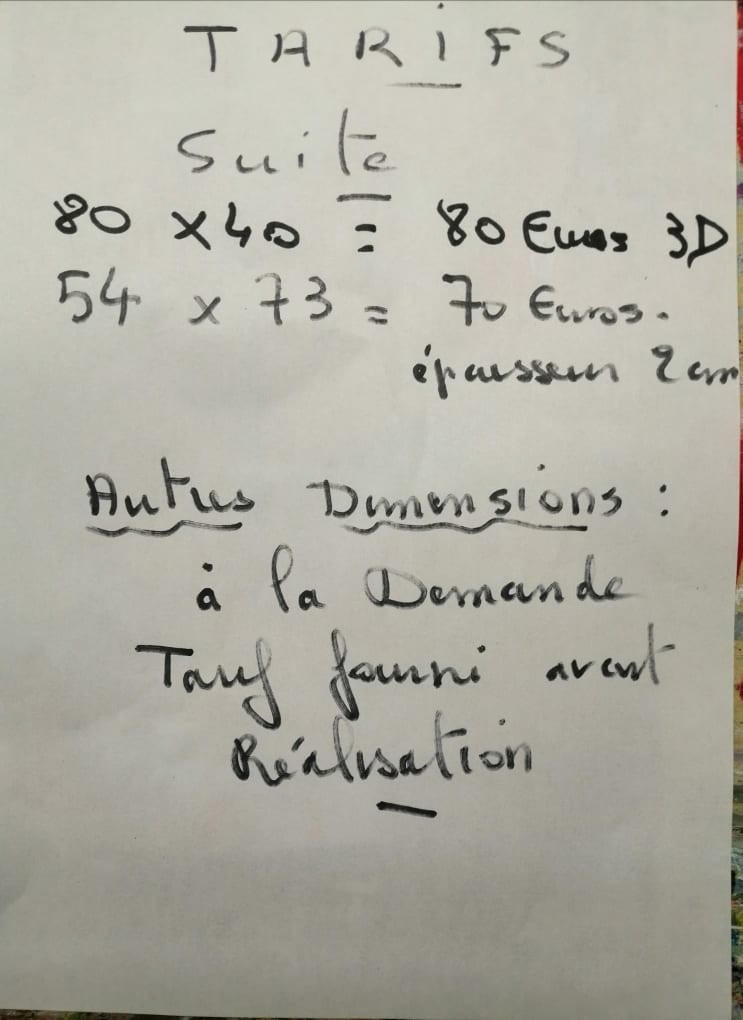 TARIFS
Suite
80 x 40 = 80 Euros 3D
54 x 73 = 70 Euros.
épaisseur 2 cm
Autres Dimensions :
à la Demande
Tarif fourni avant
Réalisation